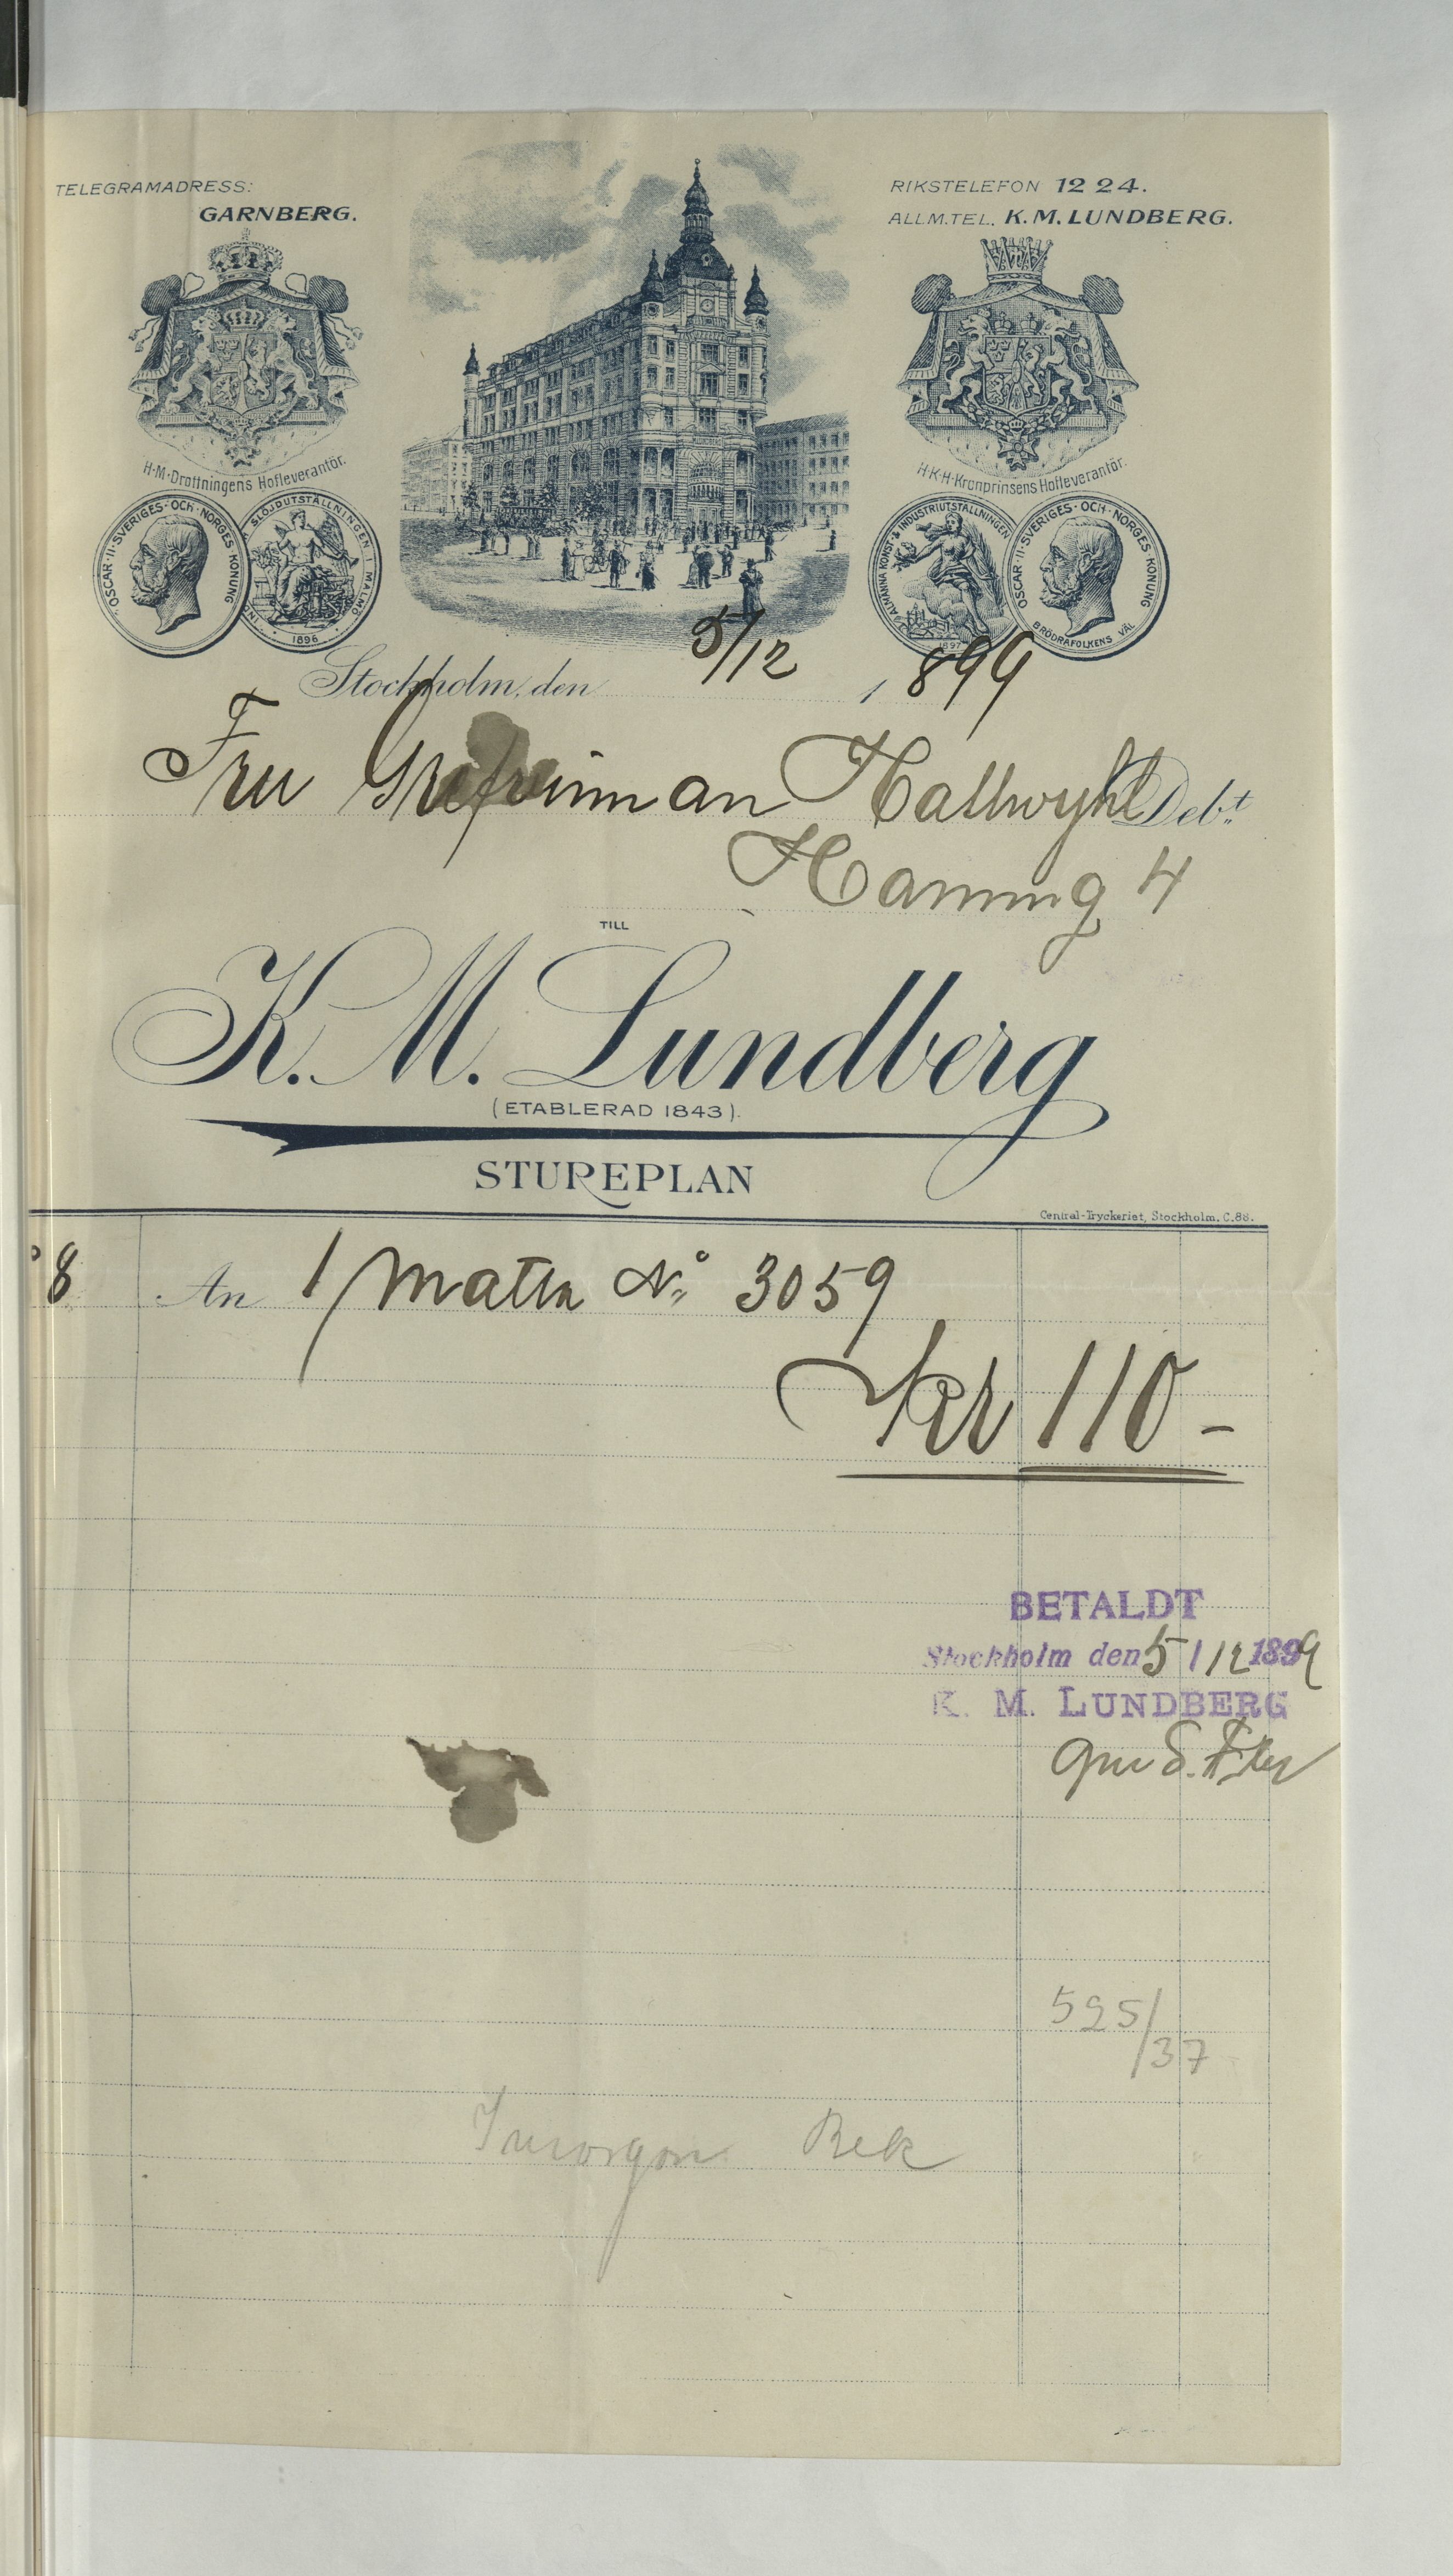 TELEGRAMADRESS:
GARNBERG.
RIKSTELEFON 12 24.
ALLM.TEL. K. M. LUNDBERG.
H·M·Drottningens Hofleverantör.
H·K·H·Kronprinsens Hofleverantör.
OSCAR·II·SVERIGES·OCH·NORGES KONUNG
SLÖJDUTSTÄLLNINGEN I MALMÖ
1896
ALMÄNNA KONST- & INDUSTRIUTSTÄLLNINGEN
1897
OSCAR·II·SVERIGES·OCH·NORGES KONUNG
BRÖDRAFOLKENS VÄL
Stockholm, den 5/12 1899
Fru Grefvinnan Hallwyhl Deb:t
Hamng 4
TILL
K. M. Lundberg
(ETABLERAD 1843).
STUREPLAN
Central-Tryckeriet, Stockholm. C.88.
8 An 1 Matta No 3059
Kr 110 -
BETALDT
Stockholm den 5/12 1899
K. M. LUNDBERG
525/37
Imorgon Rek